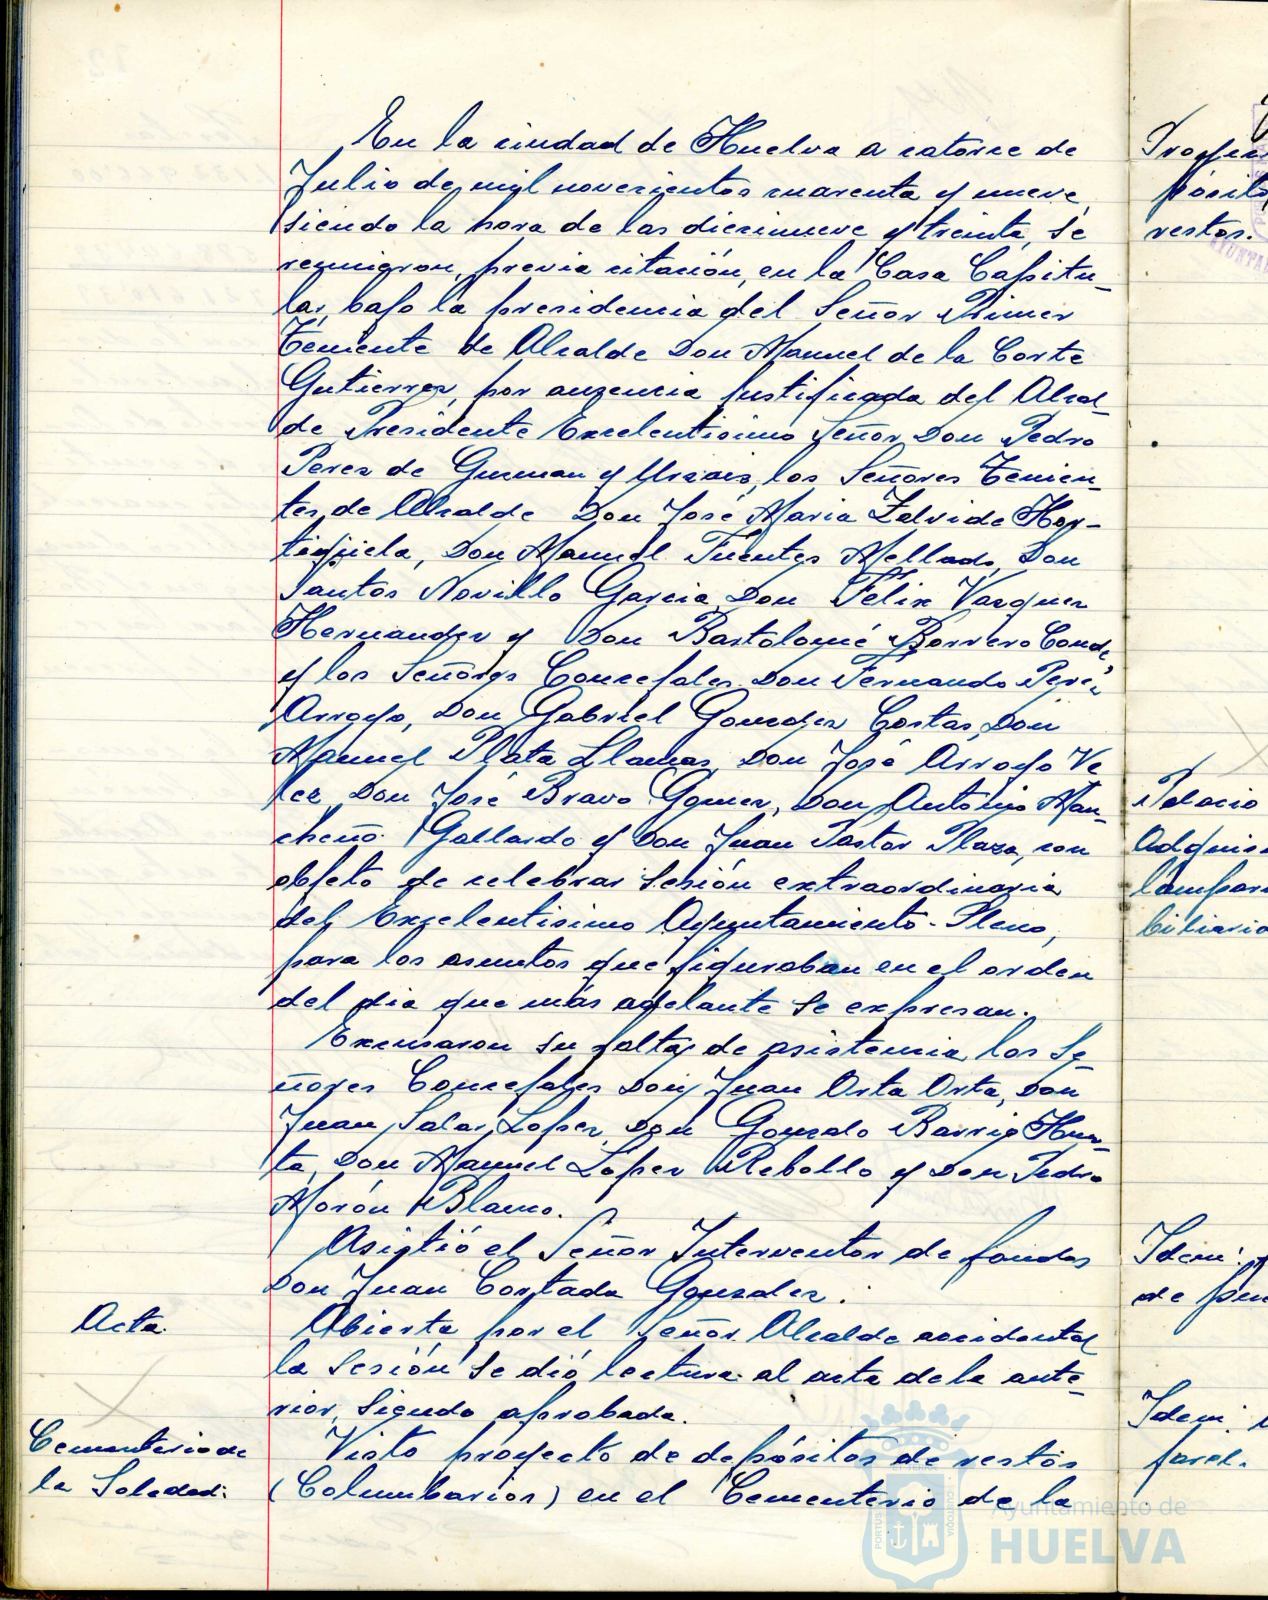 En la ciudad de Huelva a catorce de
Julio de mil novecientos cuarenta y nueve,
siendo la hora de las diecinueve y treinta, se
reunieron, previa citación, en la Casa Capitu-
lar, bajo la presidencia del Señor Primer
Teniente de Alcalde Don Manuel de la Corte
Gutierrez, por ausencia justificada del Alcal-
de Presidente Excelentisimo Señor Don Pedro
Perez de Guzman y Urzaiz, los Señores Tenien-
tes de Alcalde Don José Maria Zalvide Hor-
tigüela, Don Manuel Fuentes Mellado, Don
Santos Novillo Garcia, Don Felix Vazquez
Hernandez y Don Bartolomé Borrero Conde,
y los Señores Concejales Don Fernando Perez
Arroyo, Don Gabriel Gonzalez Costas, Don
Manuel Plata Llamas, Don José Arroyo Ve-
lez, Don José Bravo Gomez, Don Antonio Man-
cheño Gallardo y Don Juan Pastor Plaza, con
objeto de celebrar sesión extraordinaria
del Excelentisimo Ayuntamiento-Pleno,
para los asuntos que figuraban en el orden
del dia que más adelante se expresan.
Excusaron su falta de asistencia, los Se-
ñores Concejales Don Juan Orta Orta, Don
Juan Salas Lopez, Don Gonzalo Barrio Huer-
ta, Don Manuel López Rebollo y Don Pedro
Morón Blanco.
Asistió el Señor Interventor de fondos
Don Juan Cortada Gonzalez.
Acta.
Abierta por el Señor Alcalde accidental
la Sesión se dió lectura al acta de la ante-
rior, siendo aprobada.
Cementerio de
la Soledad:
Visto proyecto de depósitos de restos
(Columbarios) en el Cementerio de la
restos.
Palacio
Idem:
Idem:
Ayuntamiento de
HUELVA